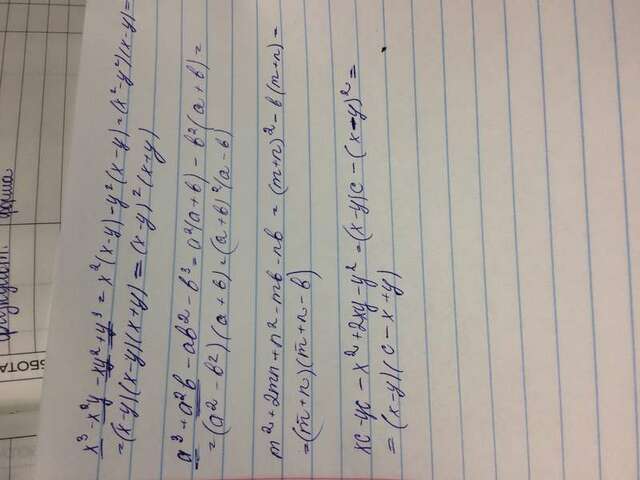 форма
x³ - x²y - xy² + y³ = x²(x-y) - y²(x-y) = (x²-y²)(x-y) =
= (x-y)(x-y)(x+y) = (x-y)²(x+y)
a³ + a²b - ab² - b³ = a²(a+b) - b²(a+b) =
= (a² - b²)(a+b) = (a+b)²(a-b)
m² + 2mn + n² - mb - nb = (m+n)² - b(m+n) =
= (m+n)(m+n-b)
xc - yc - x² + 2xy - y² = (x-y)c - (x-y)² =
= (x-y)(c-x+y)